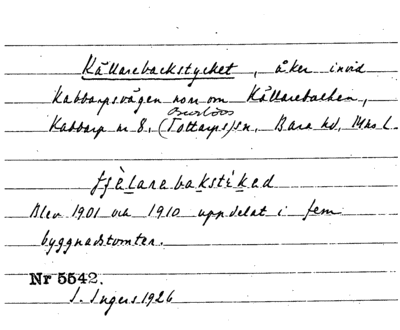 Källarebackstycket, åker invid
Kabbarpsvägen norr om Källarebacken,
Burlövs
Kabbarp nr 8, (Tottarps) sn, Bara hd, Mlms l.
blev 1901 och 1910 uppdelat i fem
byggnadstomter.
Nr 5542.
I. Ingers 1926